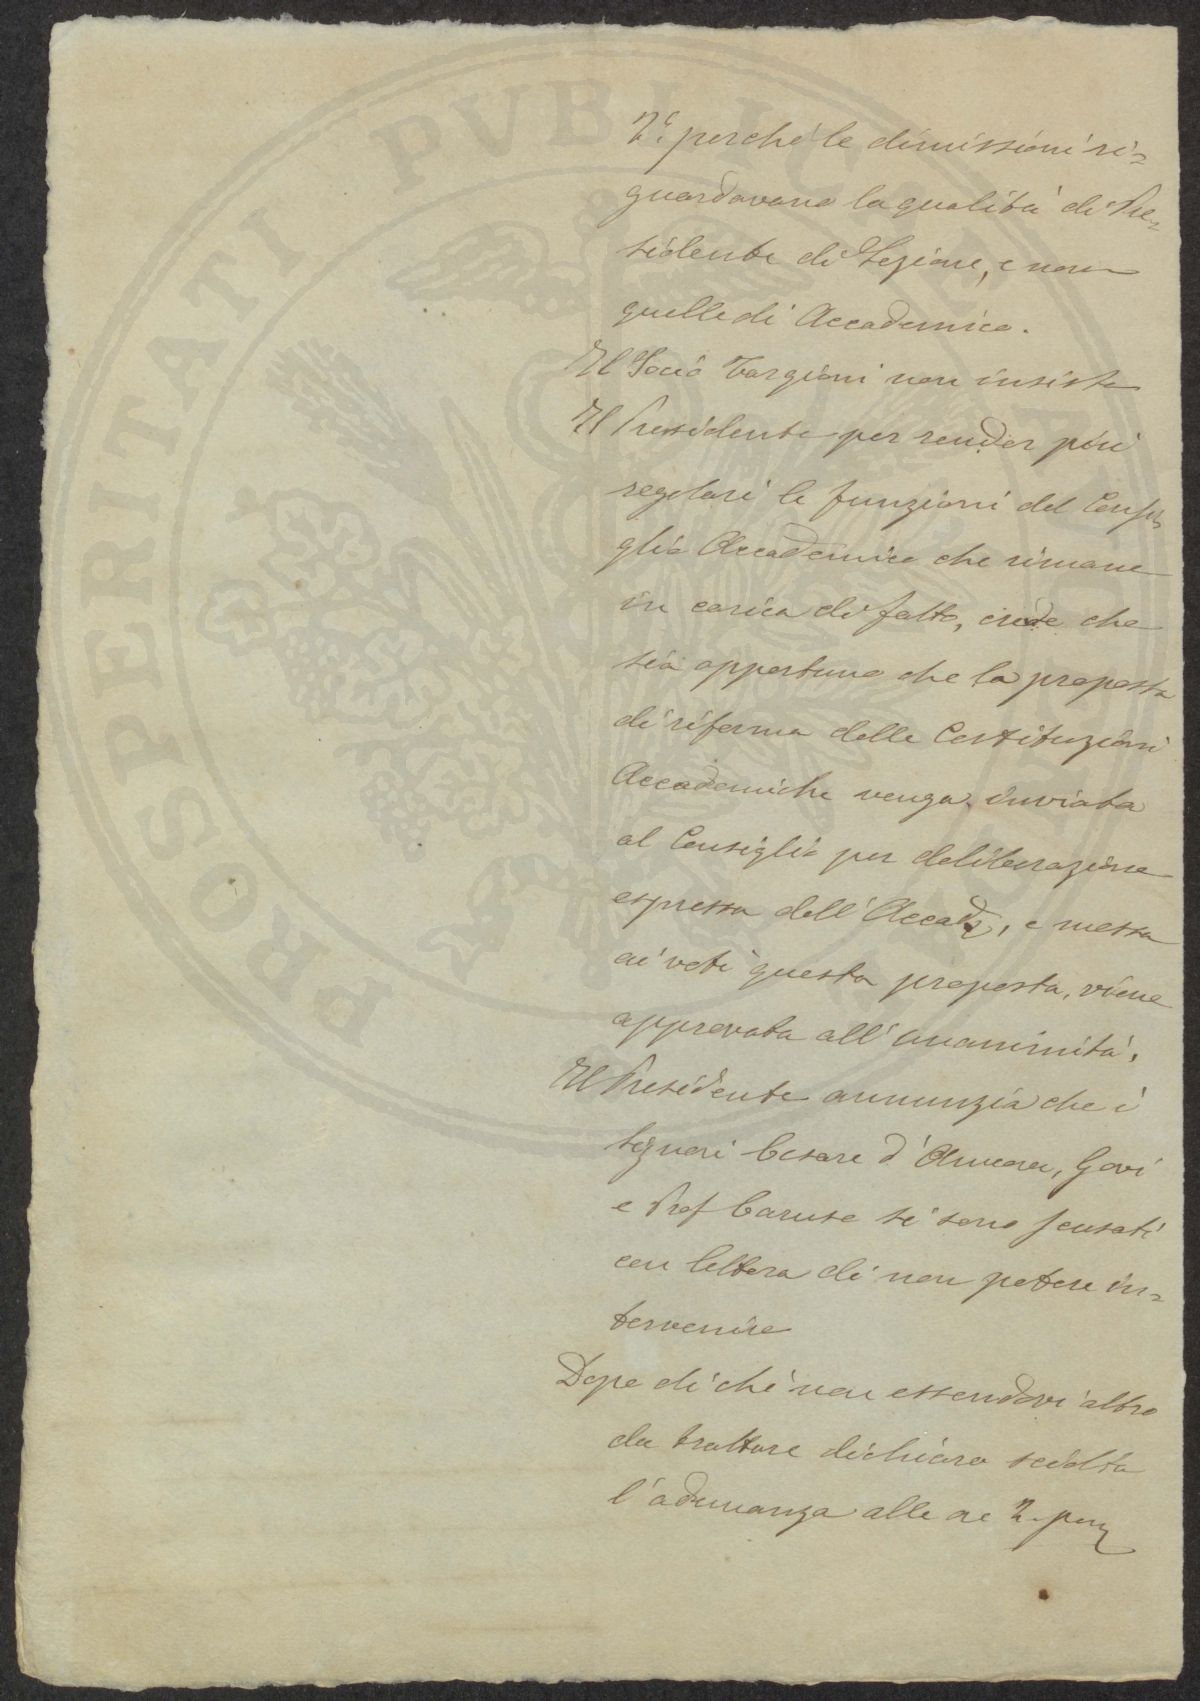 2.° perché le dimissioni ri=
guardavano la qualità di Pre=
sidente di Sezione, e non
quelle di Accademico.
Il Socio Targioni non insiste
Il Presidente per render più
regolari le funzioni del Consi=
glio Accademico che rimane
in carica di fatto, crede che
sia opportuno che la proposta
di riforma delle Costituzioni
Accademiche venga inviata
al Consiglio per deliberazione
espressa dell'Accad.ª, e messa
ai voti questa proposta, viene
approvata all'unanimità.
Il Presidente annunzia che i
Signori Cesare d'Ancona, Govi
e Prof Caruso si sono scusati
con lettera di non potere in=
tervenire
Dopo di che non essendovi altro
da trattare dichiara sciolta
l'adunanza alle ore 2. pom
PROSPERITATI PVBLICAE